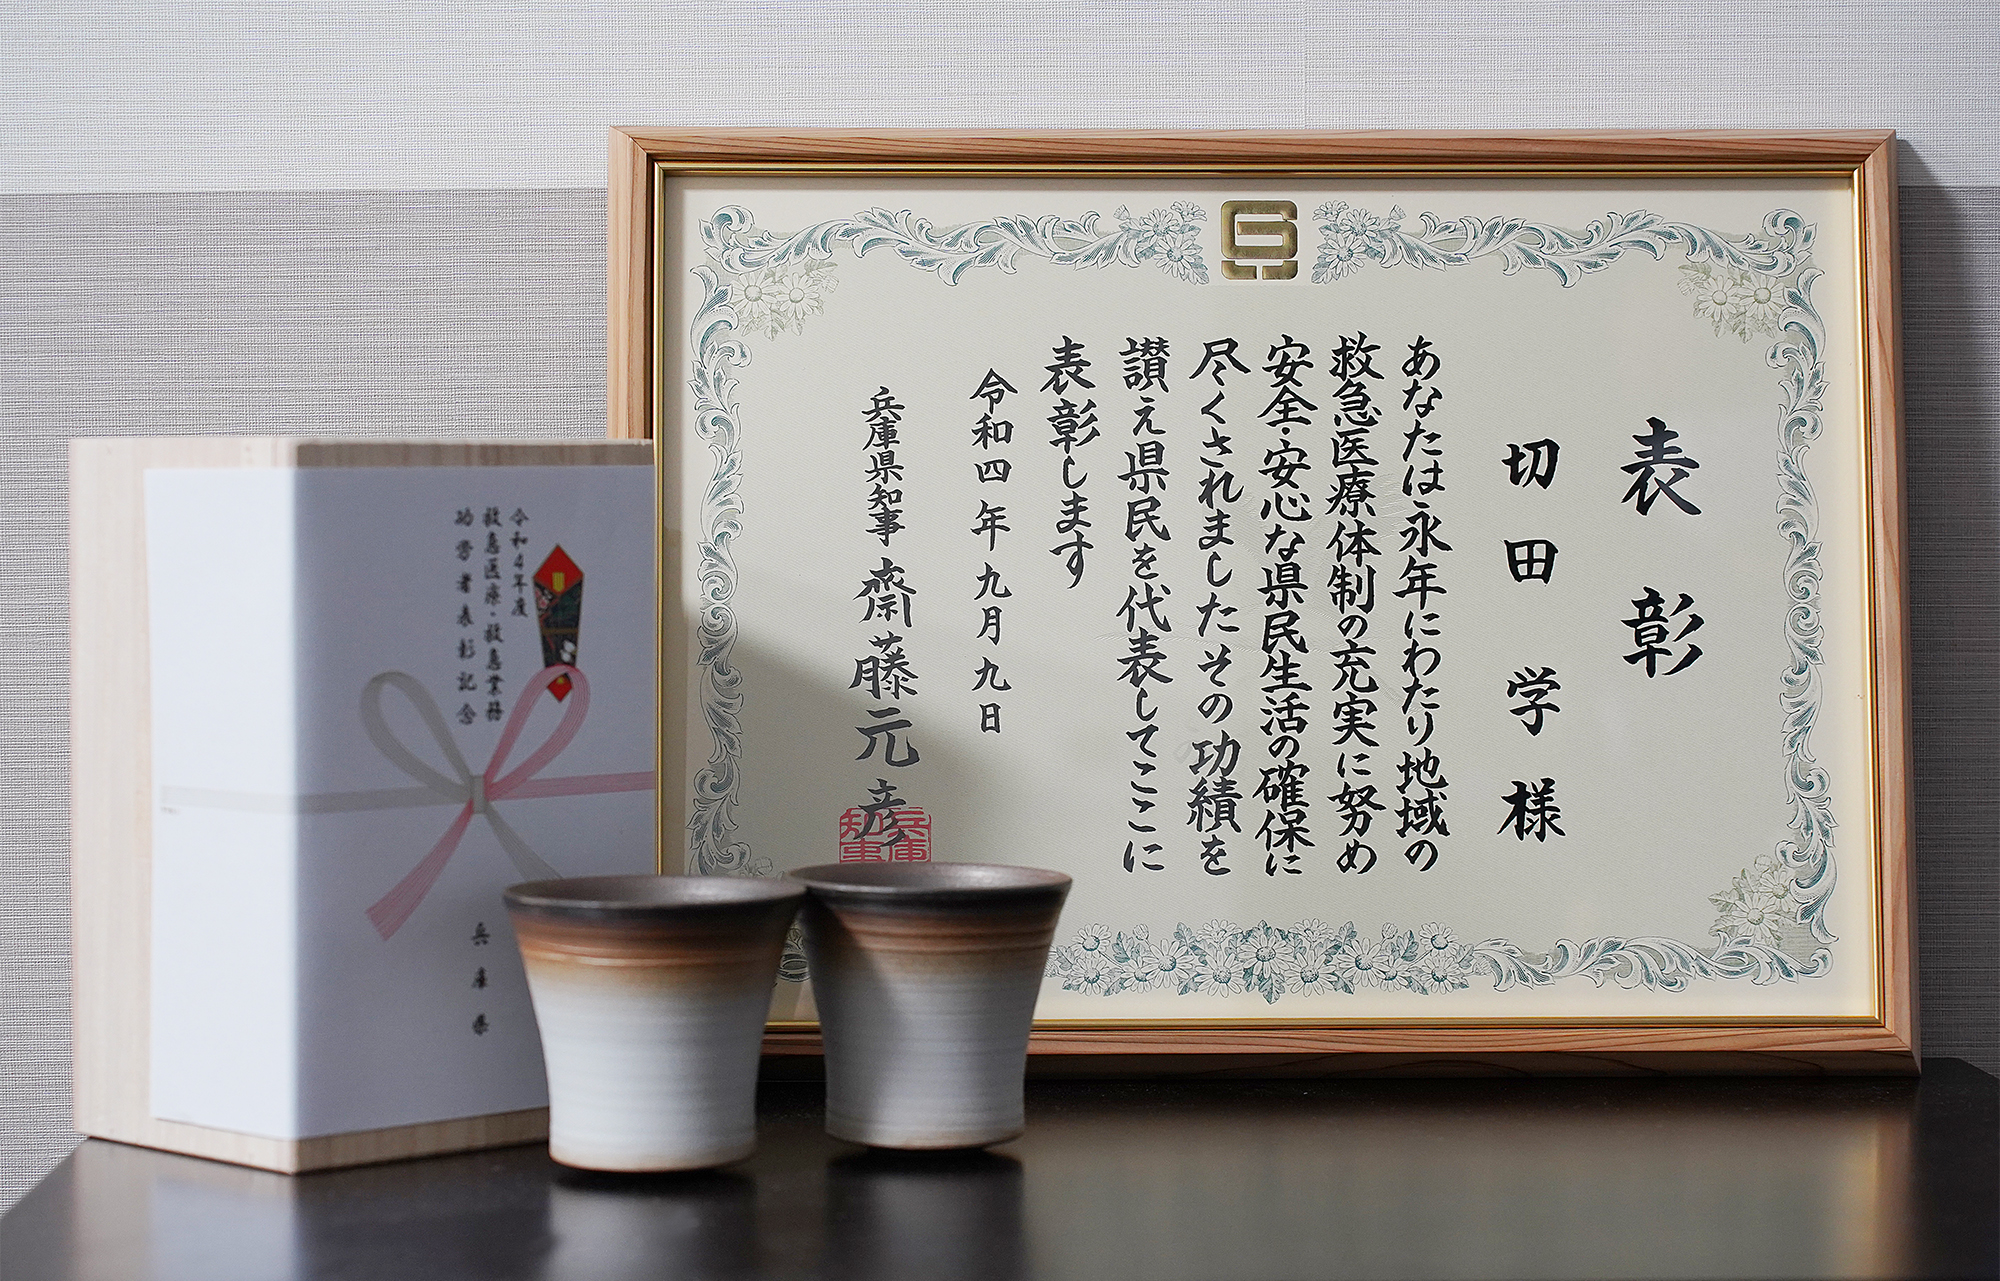 表彰
切田 学 様
あなたは永年にわたり地域の
救急医療体制の充実に努め
安全・安心な県民生活の確保に
尽くされましたその功績を
讃え県民を代表してここに
表彰します
令和四年九月九日
兵庫県知事 齋藤元彦
兵庫
知事
令和4年度
救急医療・救急業務
功労者表彰記念
兵庫県